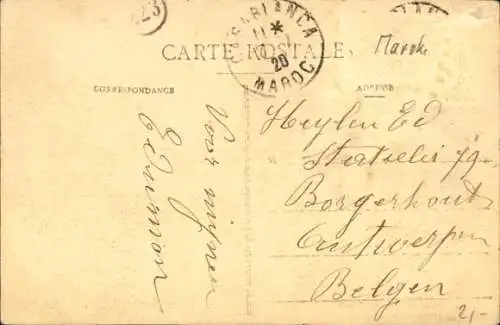 223
CARTE POSTALE
CASABLANCA
11 *
20
MAROC
Marok
CORRESPONDANCE
ADRESSE
Voor mijnen
Edurman
Heylen Ed
79
Borgerhout
Antwerpen
Belgen
2,-